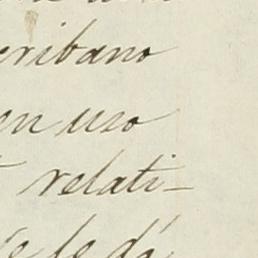 cribano
en uso
relati-
se le dá